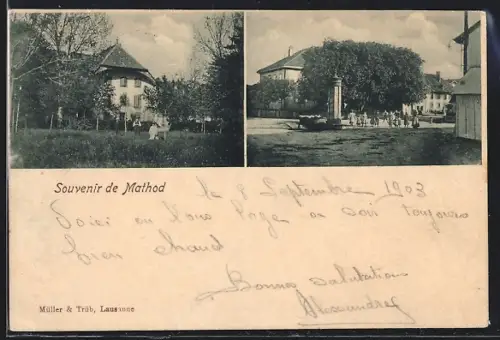 Souvenir de Mathod
le 8 Septembre 1903
Voici où l'on loge ce soir toujours
bien chaud
Bonne salutation
Alexandre
Müller & Trüb, Lausanne